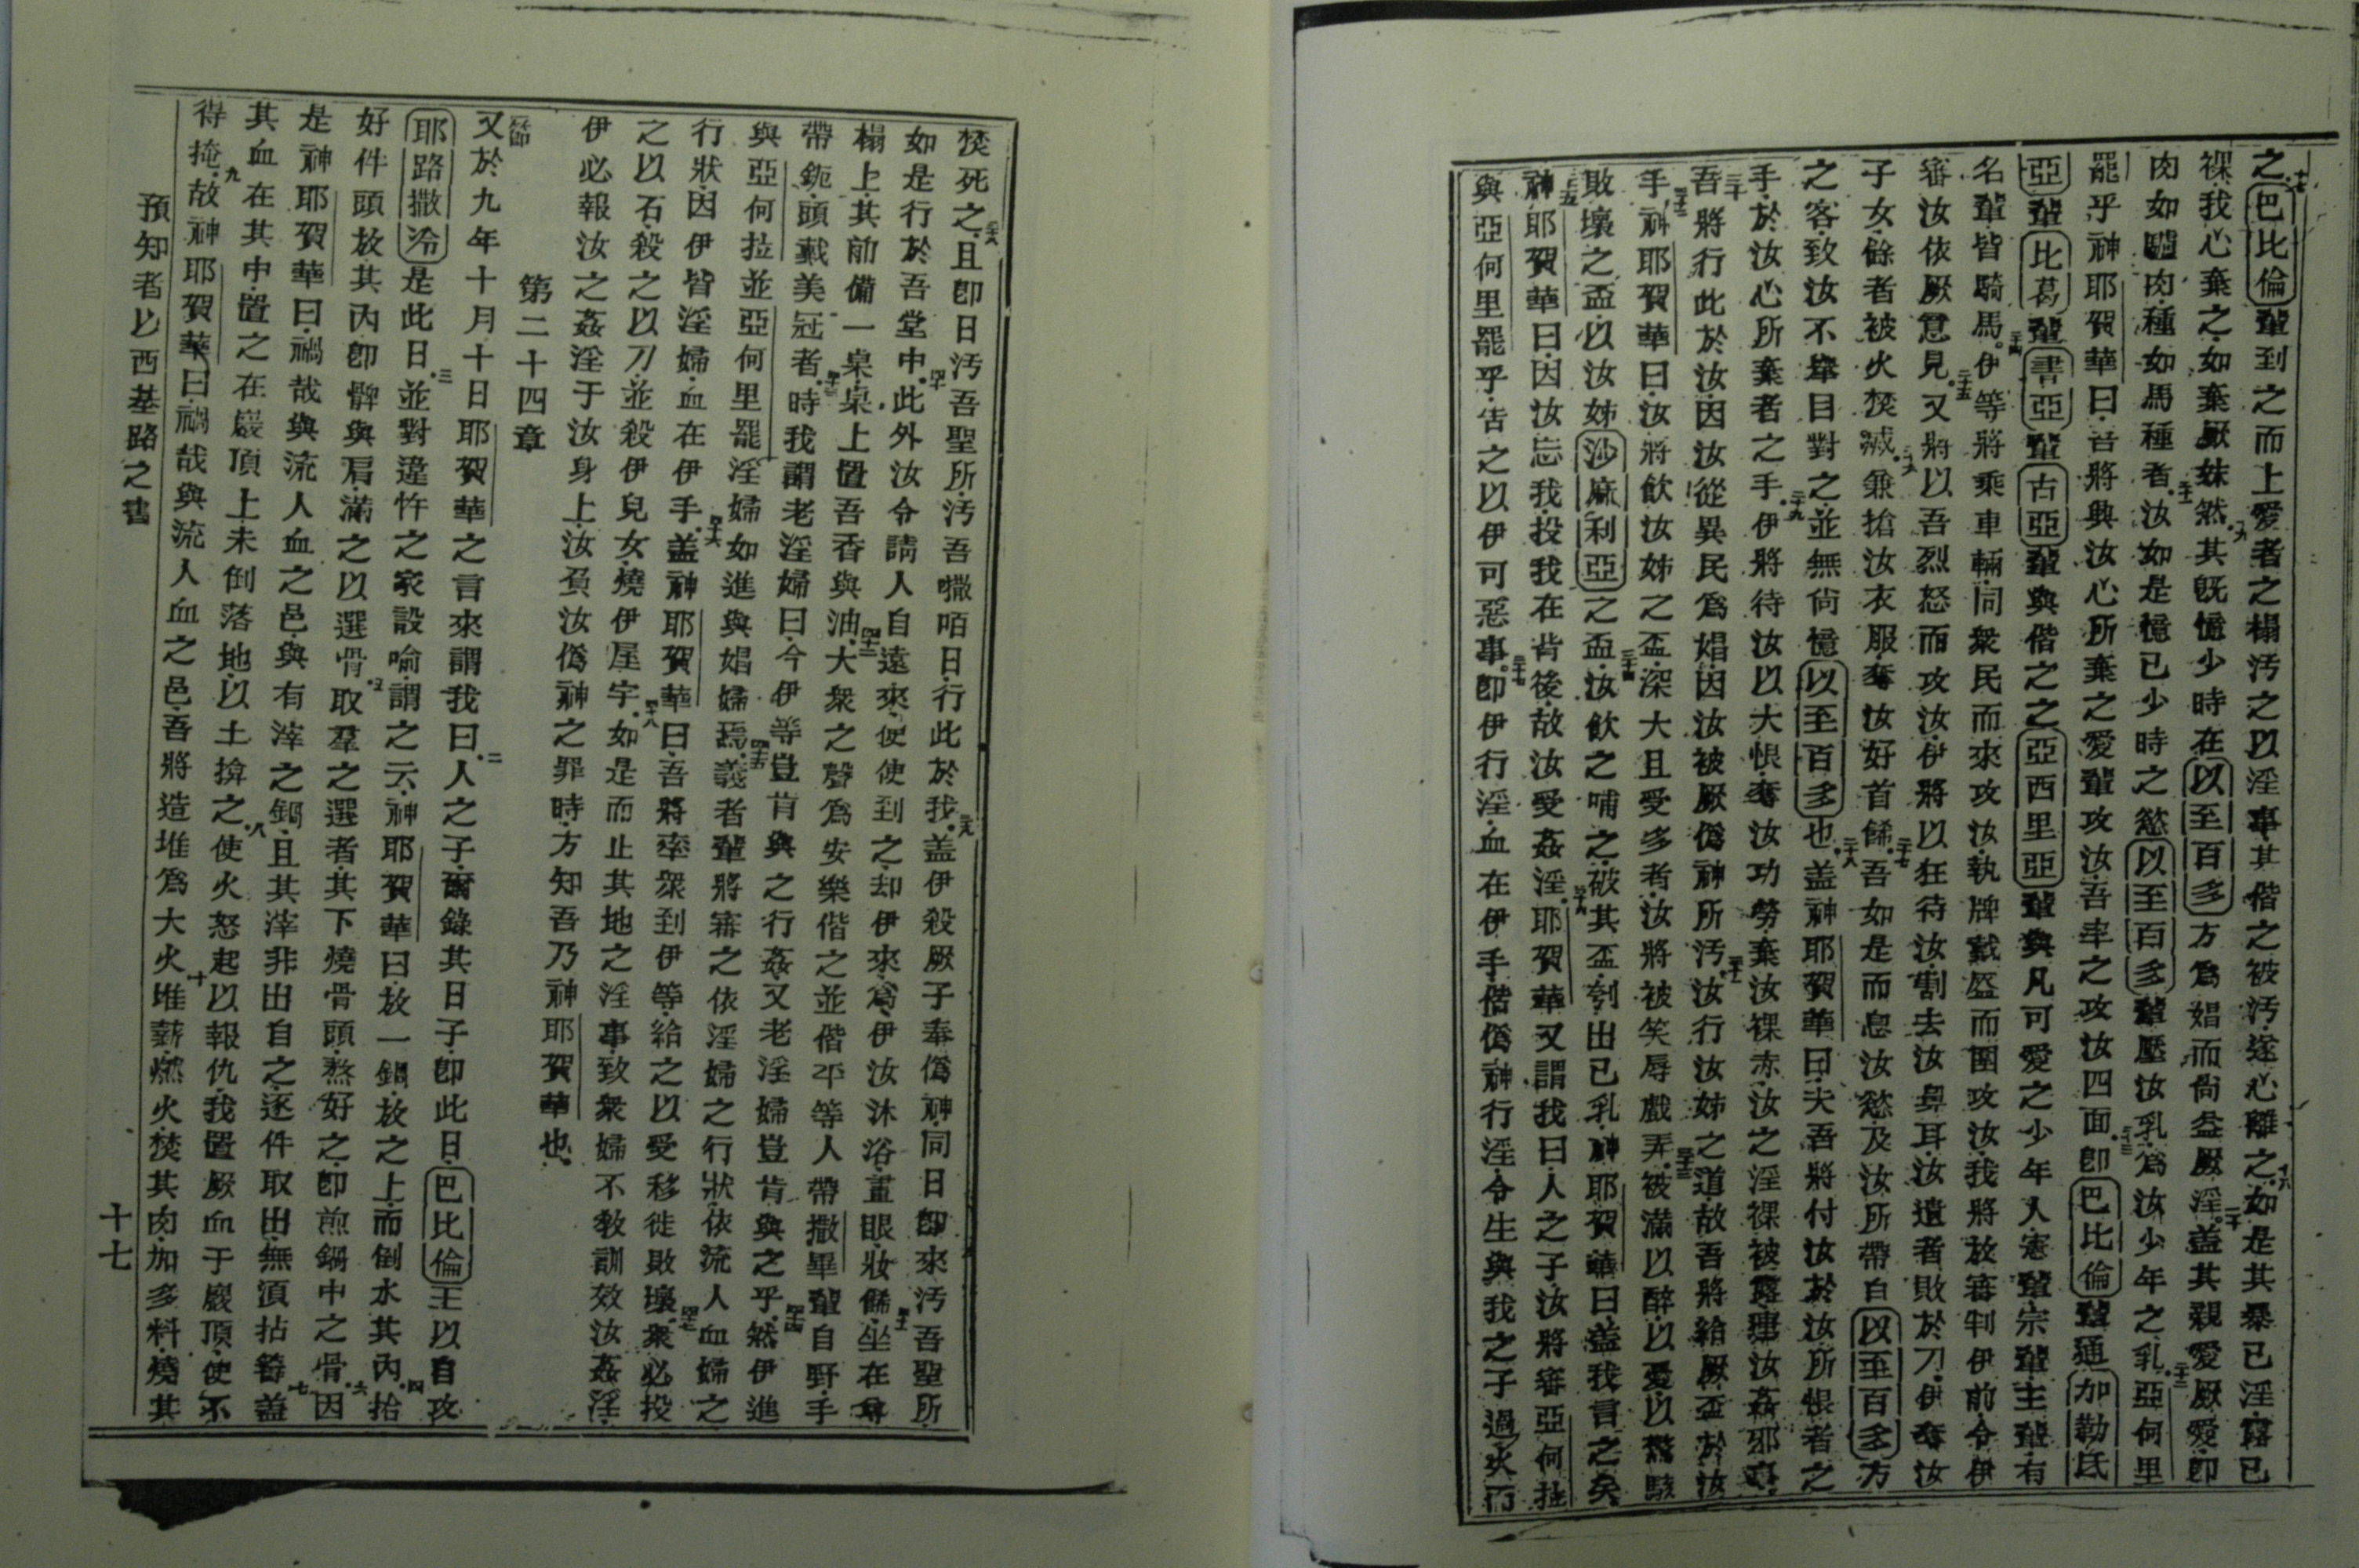 之巴比倫輩到之而上愛者之榻汚之以淫事其偕之被汚遂心離之如是其暴己淫露己
裸我心棄之如棄厥妹然其旣憶少時在以至百多方爲娼而尙益厥淫蓋其親愛厥愛卽
肉如驢肉種如馬種者汝如是憶己少時之慾以至百多輩壓汝乳爲汝少年之乳亞何里
罷乎神耶賀華曰吾將興汝心所棄之愛輩攻汝吾率之攻汝四面卽巴比倫輩通加勒氐
亞輩比葛輩書亞輩古亞輩與偕之之亞西里亞輩與凡可愛之少年人憲輩宗輩主輩有
名輩皆騎馬伊等將乘車輛同衆民而來攻汝執牌戴盔而圍攻汝我將放審判伊前令伊
審汝依厥意見又將以吾烈怒而攻汝伊將以狂待汝割去汝鼻耳汝遺者敗於刀伊奪汝
子女餘者被火焚滅兼搶汝衣服奪汝好首餙吾如是而息汝慾及汝所帶自以至百多方
之客致汝不舉目對之並無尙憶以至百多也蓋神耶賀華曰夫吾將付汝於汝所恨者之
手於汝心所棄者之手伊將待汝以大恨奪汝功勞棄汝裸赤汝之淫裸被露連汝姦邪事
吾將行此於汝因汝從異民爲娼因汝被厥僞神所汚汝行汝姊之道故吾將給厥盃於汝
手神耶賀華曰汝將飮汝姊之盃深大且受多者汝將被笑辱戲弄被滿以醉以憂以驚駭
敗壞之盃以汝姊沙麻利亞之盃汝飮之哺之破其盃刳出己乳神耶賀華曰蓋我言之矣
神耶賀華曰因汝忘我投我在背後故汝受姦淫耶賀華又謂我曰人之子汝將審亞何拉
與亞何里罷乎告之以伊可惡事卽伊行淫血在伊手偕僞神行淫令生與我之子過火而
焚死之且卽日汚吾聖所汚吾𠻳咟日行此於我蓋伊殺厥子奉僞神同日卽來汚吾聖所
如是行於吾堂中此外汝令請人自遠來便使到之却伊來爲伊汝沐浴畫眼妝餙坐在尊
榻上其前備一桌桌上置吾香與油大衆之聲爲安樂偕之並偕平等人帶撒畢輩自野手
帶鈪頭戴美冠者時我謂老淫婦曰今伊等豈肯與之行姦又老淫婦豈肯與之乎然伊進
與亞何拉並亞何里罷淫婦如進與娼婦焉義者輩將審之依淫婦之行狀依流人血婦之
行狀因伊皆淫婦血在伊手蓋神耶賀華曰吾將率衆到伊等給之以受移徙敗壞衆必投
之以石殺之以刀並殺伊兒女燒伊屋宇如是而止其地之淫事致衆婦不敎訓效汝姦淫
伊必報汝之姦淫于汝身上汝負汝僞神之罪時方知吾乃神耶賀華也
第二十四章
又於九年十月十日耶賀華之言來謂我曰人之子爾錄其日子卽此日巴比倫王以自攻
耶路撒冷是此日並對違忤之家設喻謂之云神耶賀華曰放一鍋放之上而倒水其內拾
好件頭放其內卽髀與肩滿之以選骨取羣之選者其下燒骨頭熬好之卽煎鍋中之骨因
是神耶賀華曰禍哉與流人血之邑與有滓之鍋且其滓非出自之逐件取出無須拈籌蓋
其血在其中置之在巖頂上未倒落地以土揜之使火怒起以報仇我置厥血于巖頂使不
得掩故神耶賀華曰禍哉與流人血之邑吾將造堆爲大火堆薪燃火焚其肉加多料燒其
預知者以西基路之書
十七